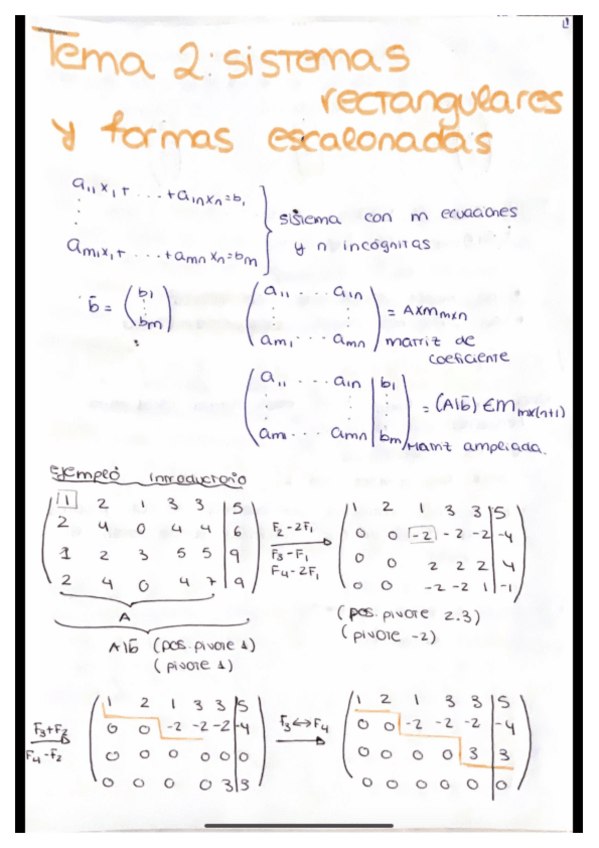 Tema 2: sistemas
rectangulares
y formas escalonadas
a₁₁x₁+ ... +a₁nxn=b₁
⋮
am₁x₁+ ... +amn xn=bm
sistema con m ecuaciones
y n incógnitas
b̄ = (b₁ ⋮ bm)
(a₁₁ ... a₁n
⋮ ⋮
am₁ ... amn) = AxMmxn
matriz de
coeficiente
(a₁₁ ... a₁n | b₁
⋮ ⋮ ⋮
am₁ ... amn | bm) = (A|b̄) ∈ Mmx(n+1)
Matriz ampliada.
Ejemplo introductorio
1 2 1 3 3 | 5
2 4 0 4 4 | 6
1 2 3 5 5 | 9
2 4 0 4 7 | 9
A
A|b̄ (pos. pivote 1)
(pivote 1)
F₂-2F₁
F₃-F₁
F₄-2F₁
1 2 1 3 3 | 5
0 0 -2 -2 -2 | -4
0 0 2 2 2 | 4
0 0 -2 -2 1 | -1
(pos. pivote 2.3)
(pivote -2)
F₃+F₂
F₄-F₂
1 2 1 3 3 | 5
0 0 -2 -2 -2 | -4
0 0 0 0 0 | 0
0 0 0 0 3 | 3
F₃↔F₄
1 2 1 3 3 | 5
0 0 -2 -2 -2 | -4
0 0 0 0 3 | 3
0 0 0 0 0 | 0